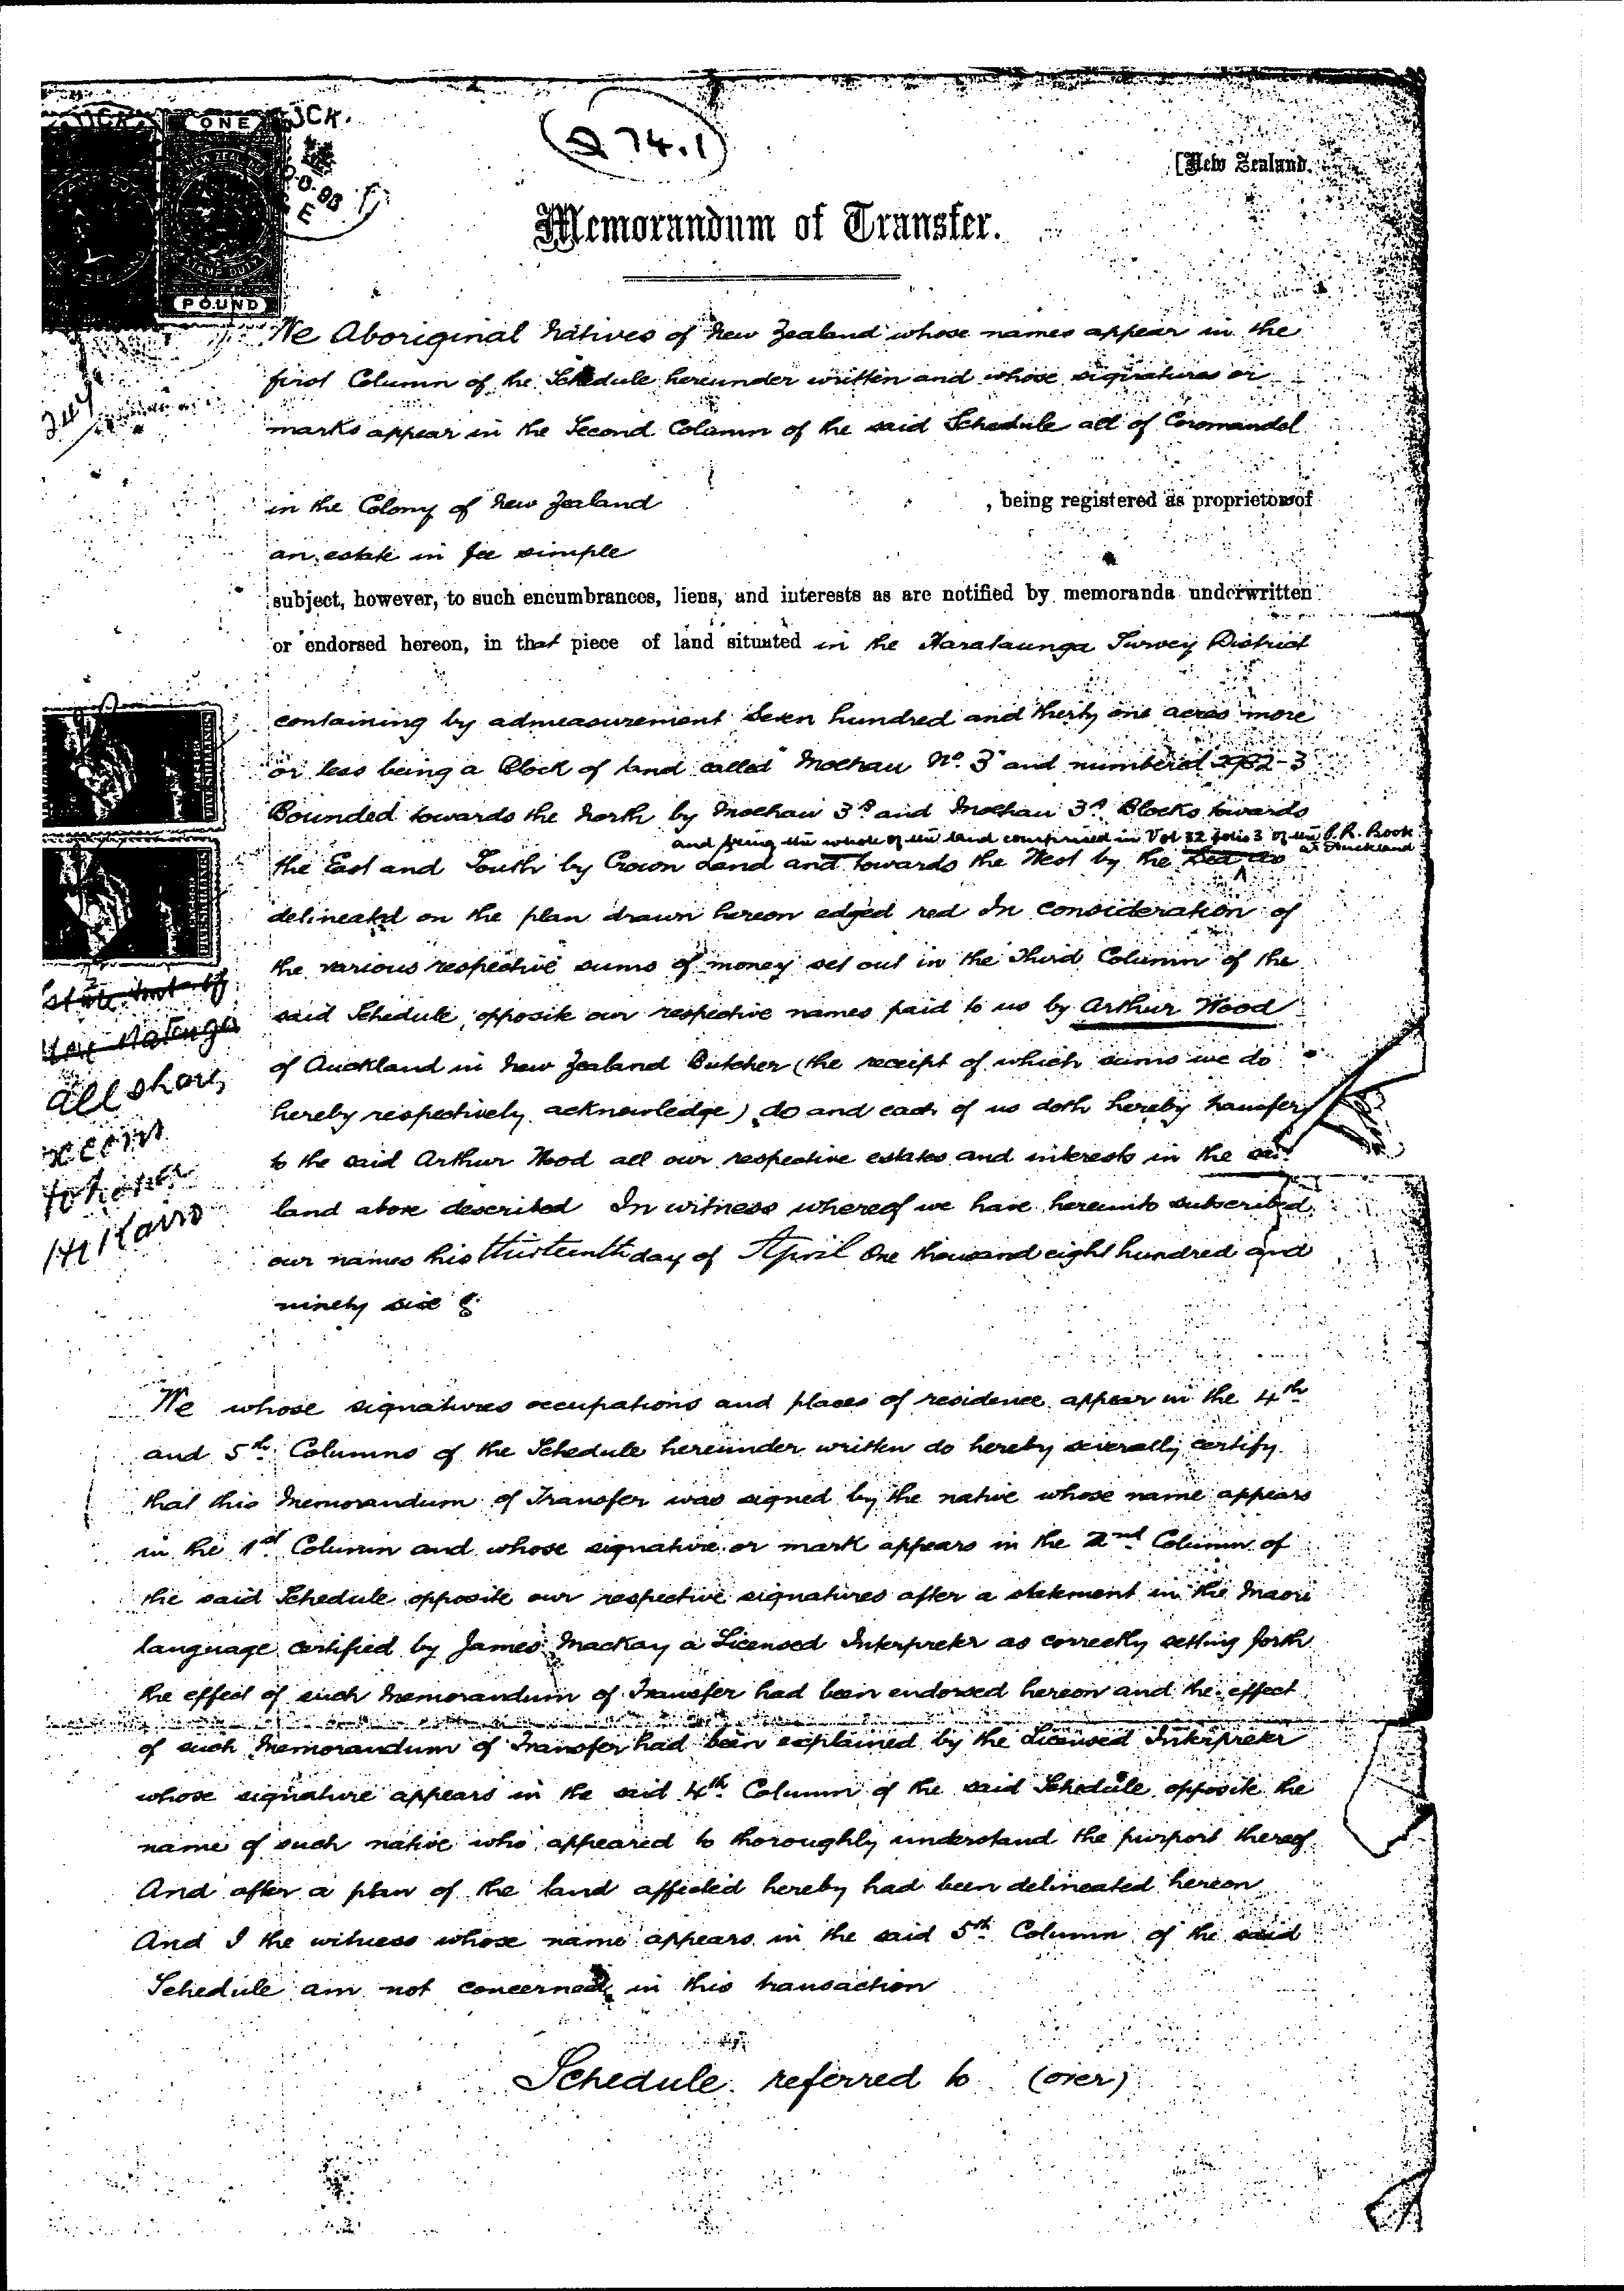 274.1
[New Zealand.
ONE
POUND
STAMP DUTY
Memorandum of Transfer.
We Aboriginal Natives of New Zealand whose names appear in the
first Column of the Schedule hereunder written and whose signatures or
marks appear in the Second Column of the said Schedule all of Coromandel
in the Colony of New Zealand , being registered as proprietors of
an estate in fee simple
subject, however, to such encumbrances, liens, and interests as are notified by memoranda underwritten
or endorsed hereon, in that piece of land situated in the Harataunga Survey District
containing by admeasurement Seven hundred and thirty one acres more
or less being a Block of land called "Moehau No. 3" and numbered
Bounded towards the North by Moehau and Moehau Blocks towards
and being the whole of the land comprised in Vol 32 folio 3 of the P.R. Book
at Auckland
the East and South by Crown Land and towards the West by the Sea as
delineated on the plan drawn hereon edged red In Consideration of
the various respective sums of money set out in the Third Column of the
said Schedule opposite our respective names paid to us by Arthur Wood
of Auckland in New Zealand Butcher (the receipt of which sums we do
hereby respectively acknowledge) do and each of us doth hereby transfer
to the said Arthur Wood all our respective estates and interests in the said
land above described In witness whereof we have hereunto subscribed
our names this thirteenth day of April One thousand eight hundred and
ninety six
all shares
We whose signatures occupations and places of residence appear in the 4th
and 5th Columns of the Schedule hereunder written do hereby severally certify
that this Memorandum of Transfer was signed by the native whose name appears
in the 1st Column and whose signature or mark appears in the 2nd Column of
the said Schedule opposite our respective signatures after a statement in the Maori
language certified by James Mackay a Licensed Interpreter as correctly setting forth
the effect of such Memorandum of Transfer had been endorsed hereon and the effect
of such Memorandum of Transfer had been explained by the Licensed Interpreter
whose signature appears in the said 4th Column of the said Schedule opposite the
name of such native who appeared to thoroughly understand the purport thereof
And after a plan of the land affected hereby had been delineated hereon
And I the witness whose name appears in the said 5th Column of the said
Schedule am not concerned in this transaction
Schedule referred to (over)